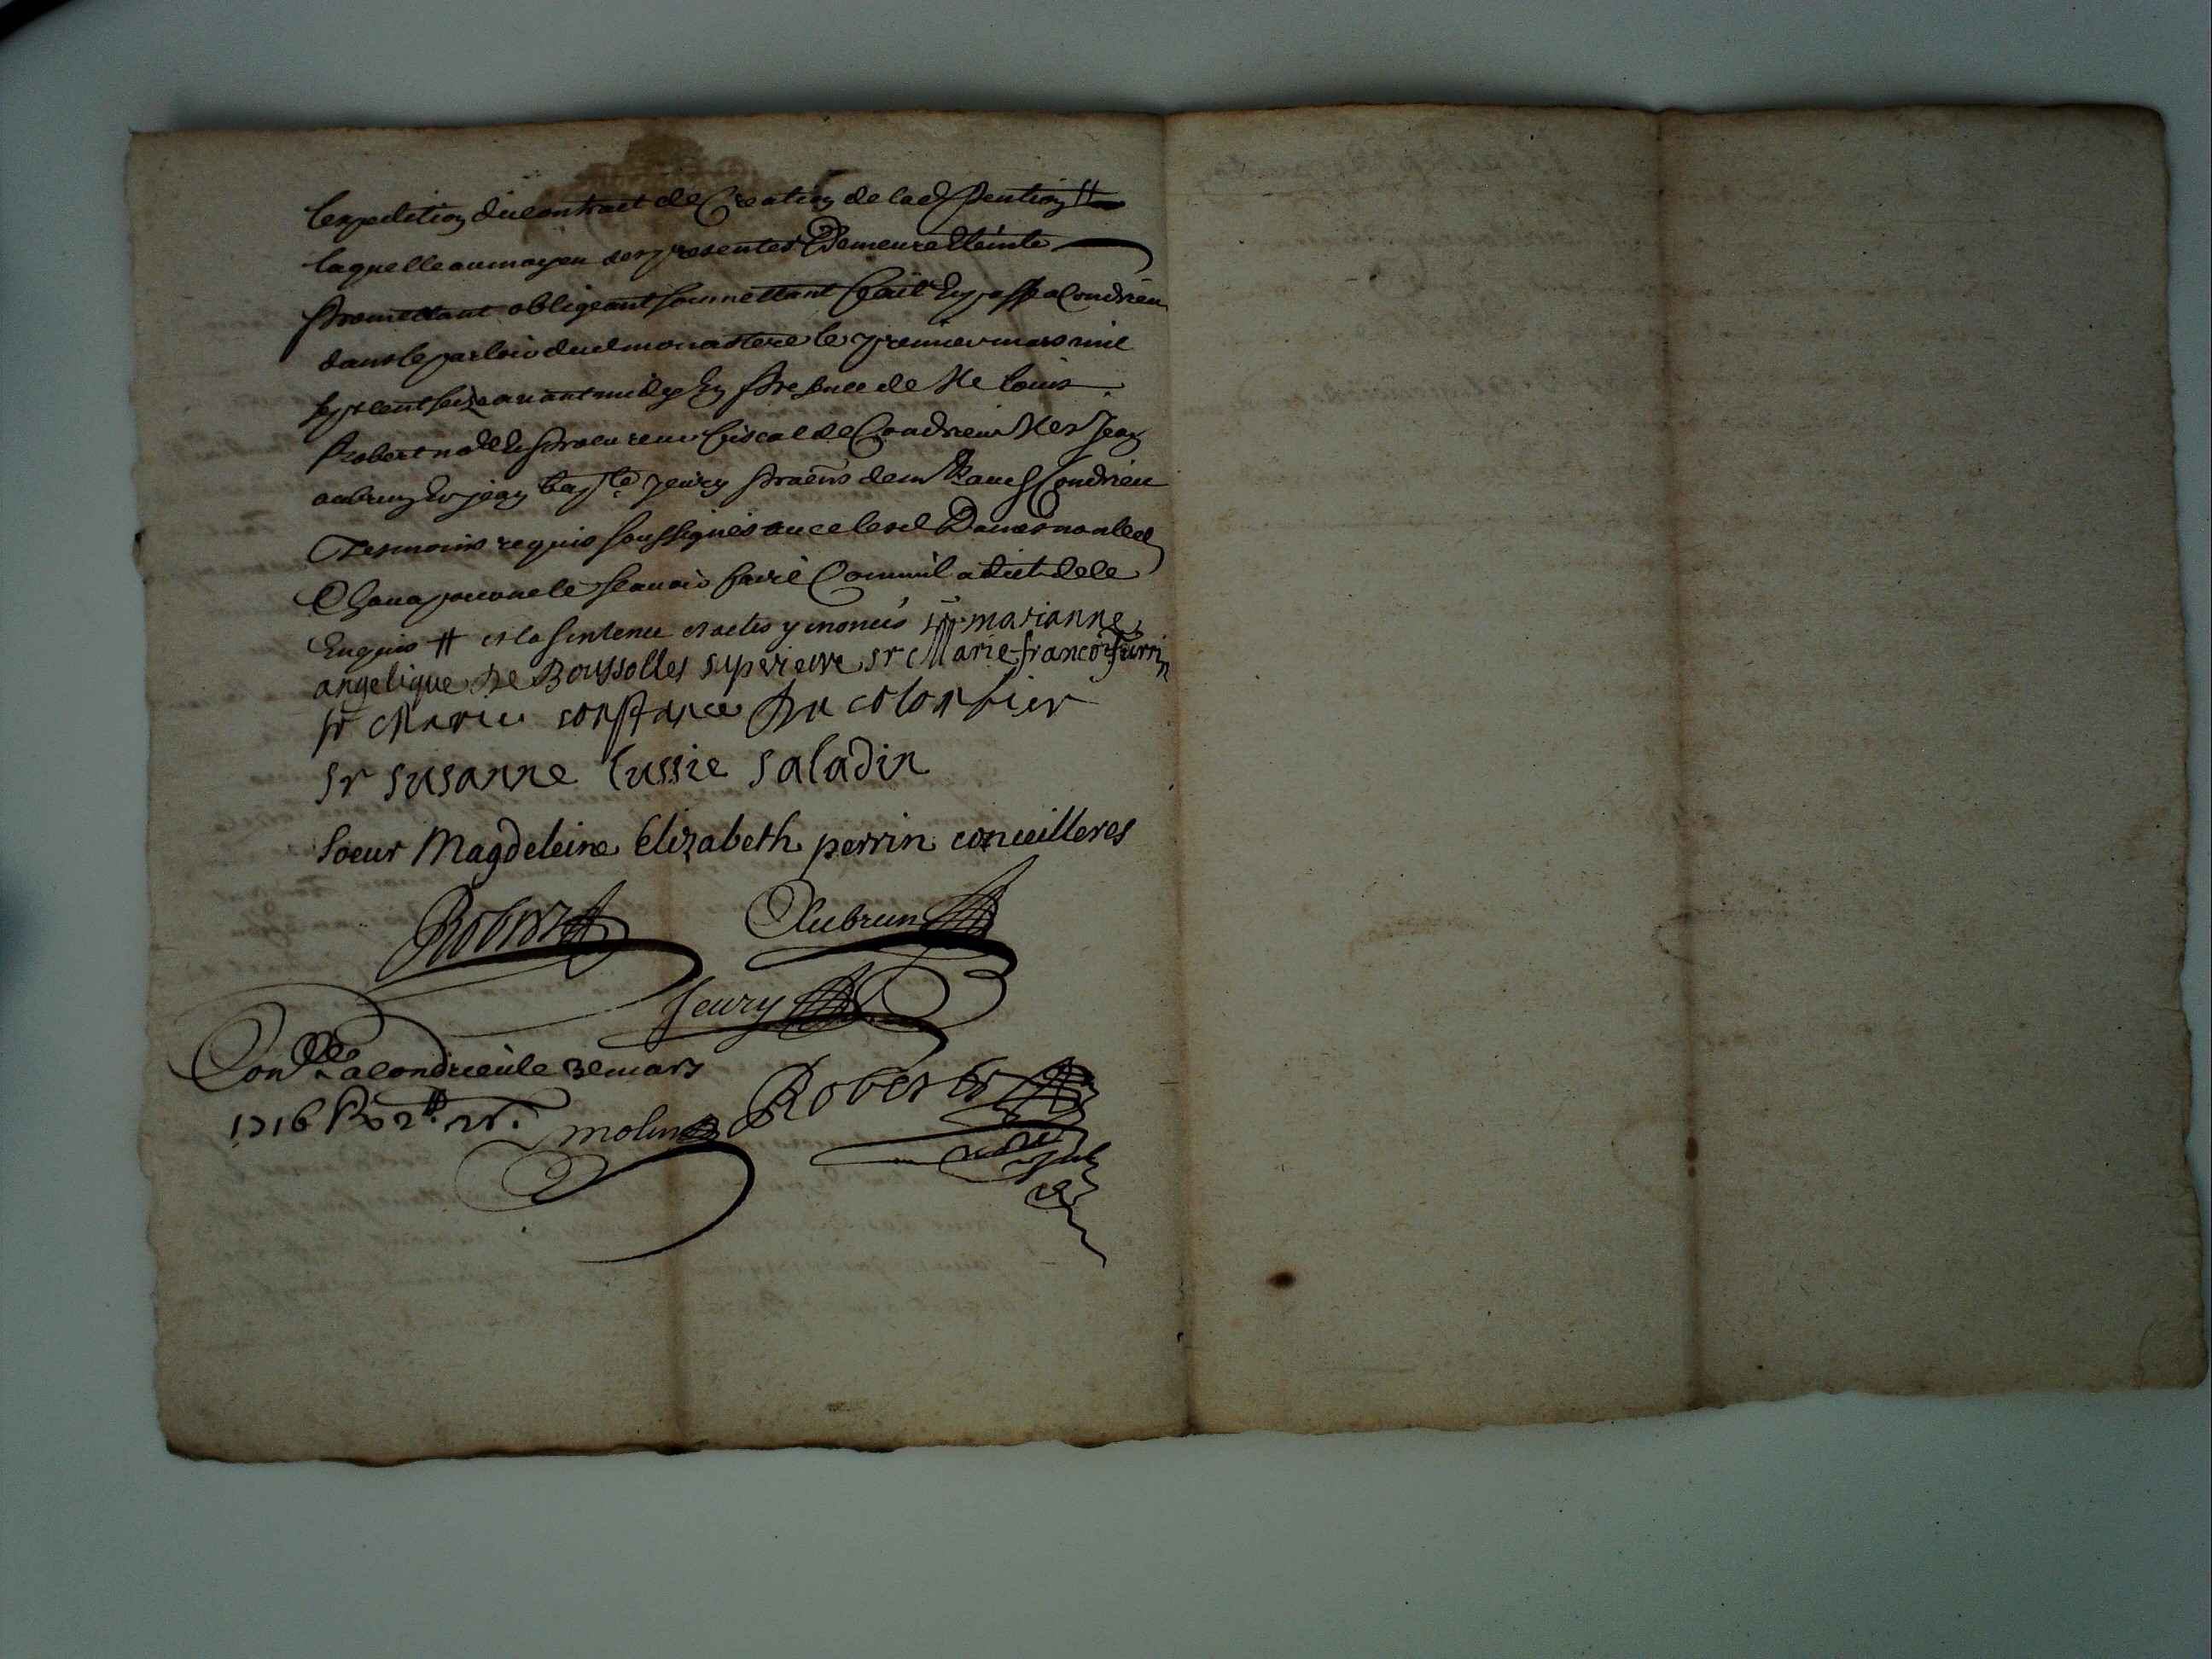 lexpedition du contract de Creation de lad pention #
laquelle au moyen des presentes Demeure Eteinte
promettant obligeant soumettant fait Et passé a Condrieu
dans le parloir dud monastere le premier mars mil
sept cent seize avant midy En presence de Me Louis
Robert no Et procureur fiscal de Condrieu Mes Jean
aubrun Et jean bapte jeury de Condrieu
Tesmoins requis soussignés avec lesd Dames non led
Chana pour ne le scavoir faire Comme il a dict de ce
Enquis # et la sentence et actes y enoncés sr marianne
angelique De Boussolles superieure sr Marie francoise perrin
sr Marie constance Du colonbier
sr susanne lussie saladin
soeur Magdeleine Elizabeth perrin conceilleres
Robert Aubrun
jeury
Conllé a Condrieu le 3e mars
1716 R
molin Robert